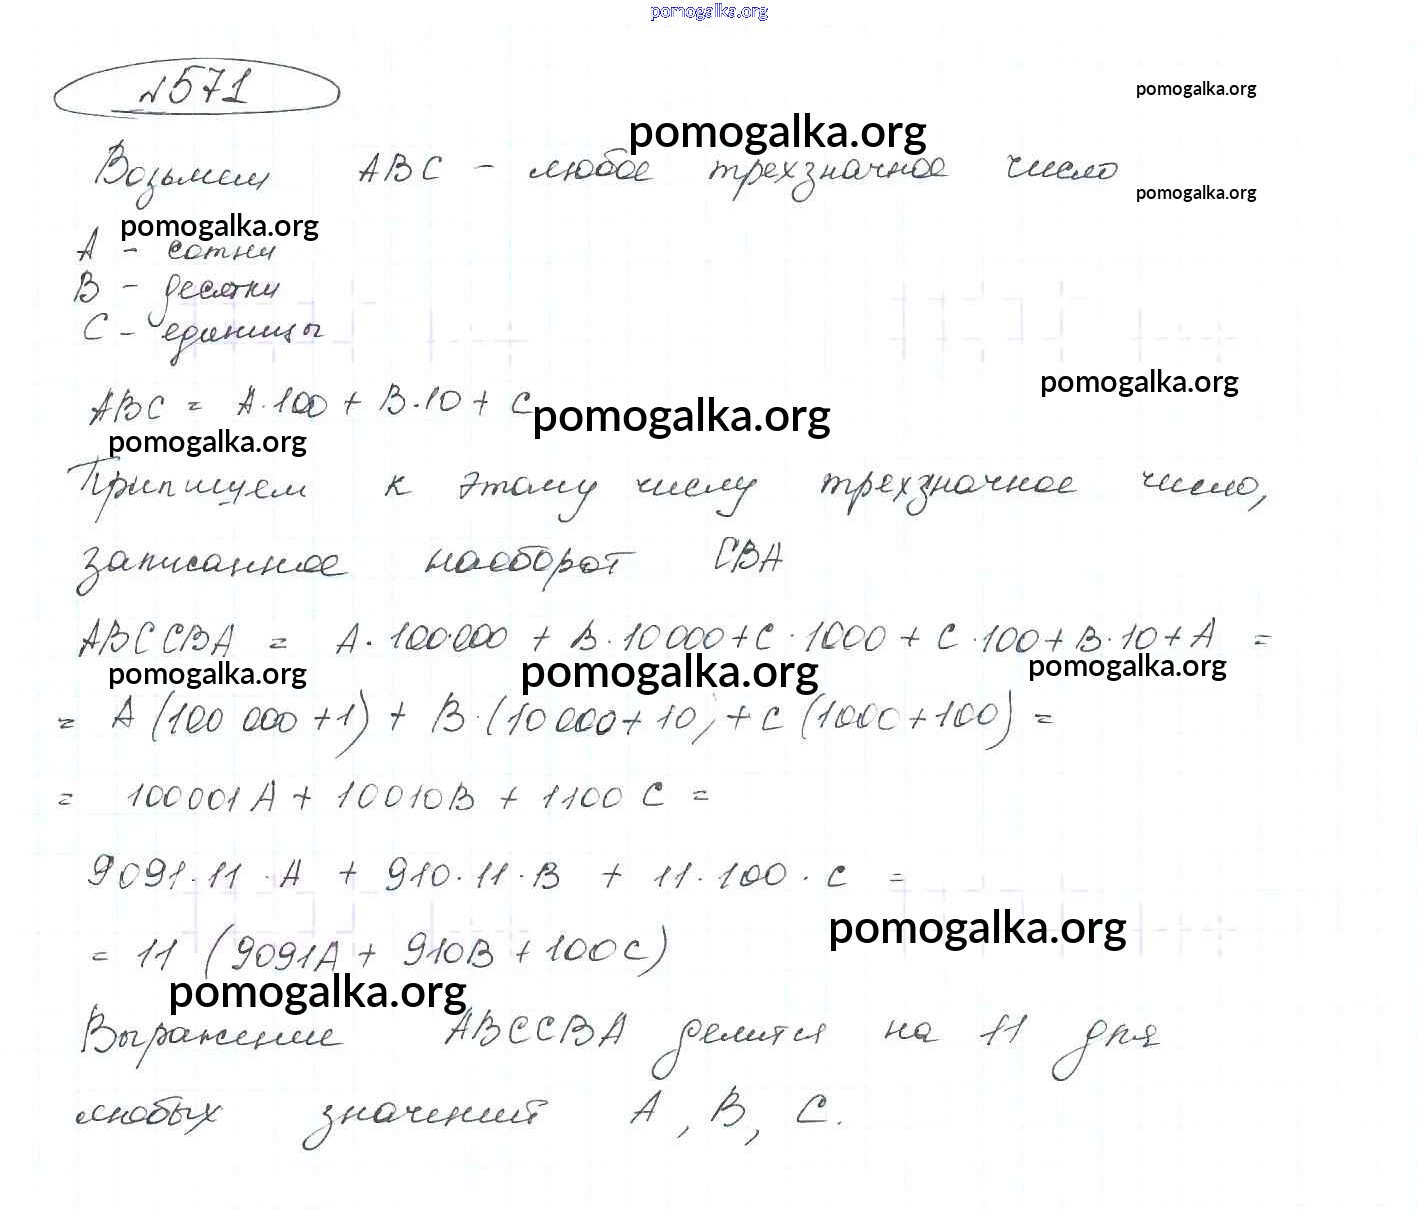 pomogalka.org
№571
pomogalka.org
pomogalka.org
Возьмем ABC - любое трехзначное число
pomogalka.org
pomogalka.org
A - сотни
B - десятки
C - единицы
pomogalka.org
ABC = A·100 + B·10 + C
pomogalka.org
pomogalka.org
Припишем к этому числу трехзначное число,
записанное наоборот CBA
ABCCBA = A·100000 + B·10000+C·1000 + C·100+B·10+A =
pomogalka.org
pomogalka.org
pomogalka.org
= A (100 000 +1) + B·(10 000+10) + C (1000+100) =
= 100001A + 10010B + 1100 C =
9091·11·A + 910·11·B + 11·100·C =
pomogalka.org
= 11 (9091A + 910B + 100C)
pomogalka.org
Выражение ABCCBA делится на 11 для
любых значений A, B, C.